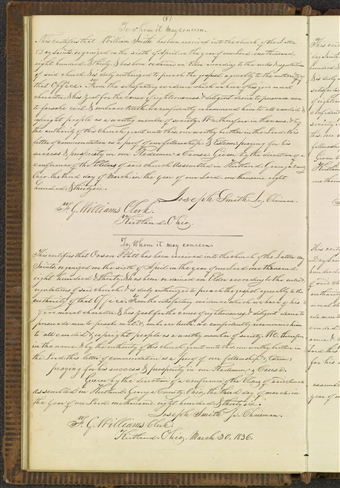 (1)
To whom it may concern.
This certifies that William Smith has been received into the church of the Latter
Day Saints, organized on the sixth of April in the year of our Lord one thousand
eight hundred & thirty, & has been ordained an Elder according to the rules & regulations
of said church, & is duly authorized to preach the gospel agreeably to the authority of
that Office. From the satisfactory evidence which we have of his good moral
character, & his zeal for the cause of righteousness, & diligent desire to persuade men
to forsake evil & embrace truth, we confidently recommend him to all candid &
upright people as a worthy member of society. We therefore in the name, & by
the authority of this church, grant unto this our worthy brother in the Lord, this
letter of commendation as a proof of our fellowship & Esteem: praying for his
success & prosperity in our Redeemer's Cause. Given by the direction of a
conference of the Elders of said church assembled in Kirtland, Geauga County,
Ohio, the third day of March in the year of our Lord one thousand eight
hundred & thirty six.
Joseph Smith Jr. Chairman.
F. G. Williams Clerk.
Kirtland, Ohio,
To, Whom it may concern
This certifies that Orson Pratt has been received into the church of the Latter Day
Saints, organized on the sixth of April in the year of our Lord one thousand
eight hundred & thirty, & has been ordained an Elder according to the rules &
regulations of said church, & is duly authorized to preach the gospel agreeably to the
authority of that Office. From the satisfactory evidence which we have of his
good moral character, & his zeal for the cause of righteousness, & diligent desire to
persuade men to forsake evil & embrace truth, we confidently recommend him
to all candid & upright people as a worthy member of society. We, therefore,
in the name, & by the authority of this church, grant unto this our worthy brother in
the Lord, this letter of commendation as a proof of our fellowship & Esteem:
praying for his success & prosperity in our Redeemer's Cause.
Given by the direction of a conference of the Elders of said church
assembled in Kirtland, Geauga County, Ohio, the third day of March in
the year of our Lord one thousand eight hundred & thirty six.
Joseph Smith Jr. Chairman
F. G. Williams Clerk.
Kirtland, Ohio, March 30, 1836.